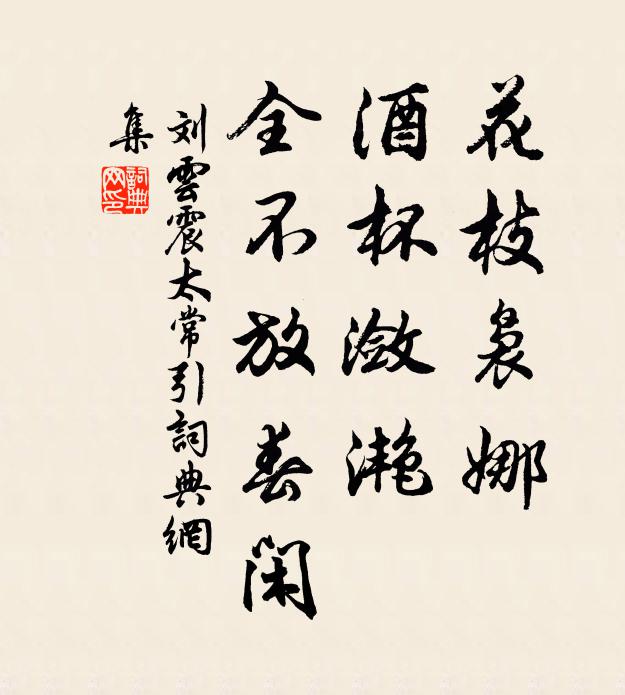 花枝袅娜
酒杯潋滟
全不放春闲
刘雲震太常引詞典網
集
詞典
网印